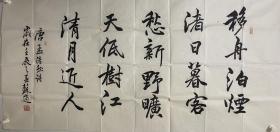 移舟泊煙
渚日暮客
愁新野曠
天低樹江
清月近人
唐孟浩然诗
歲在